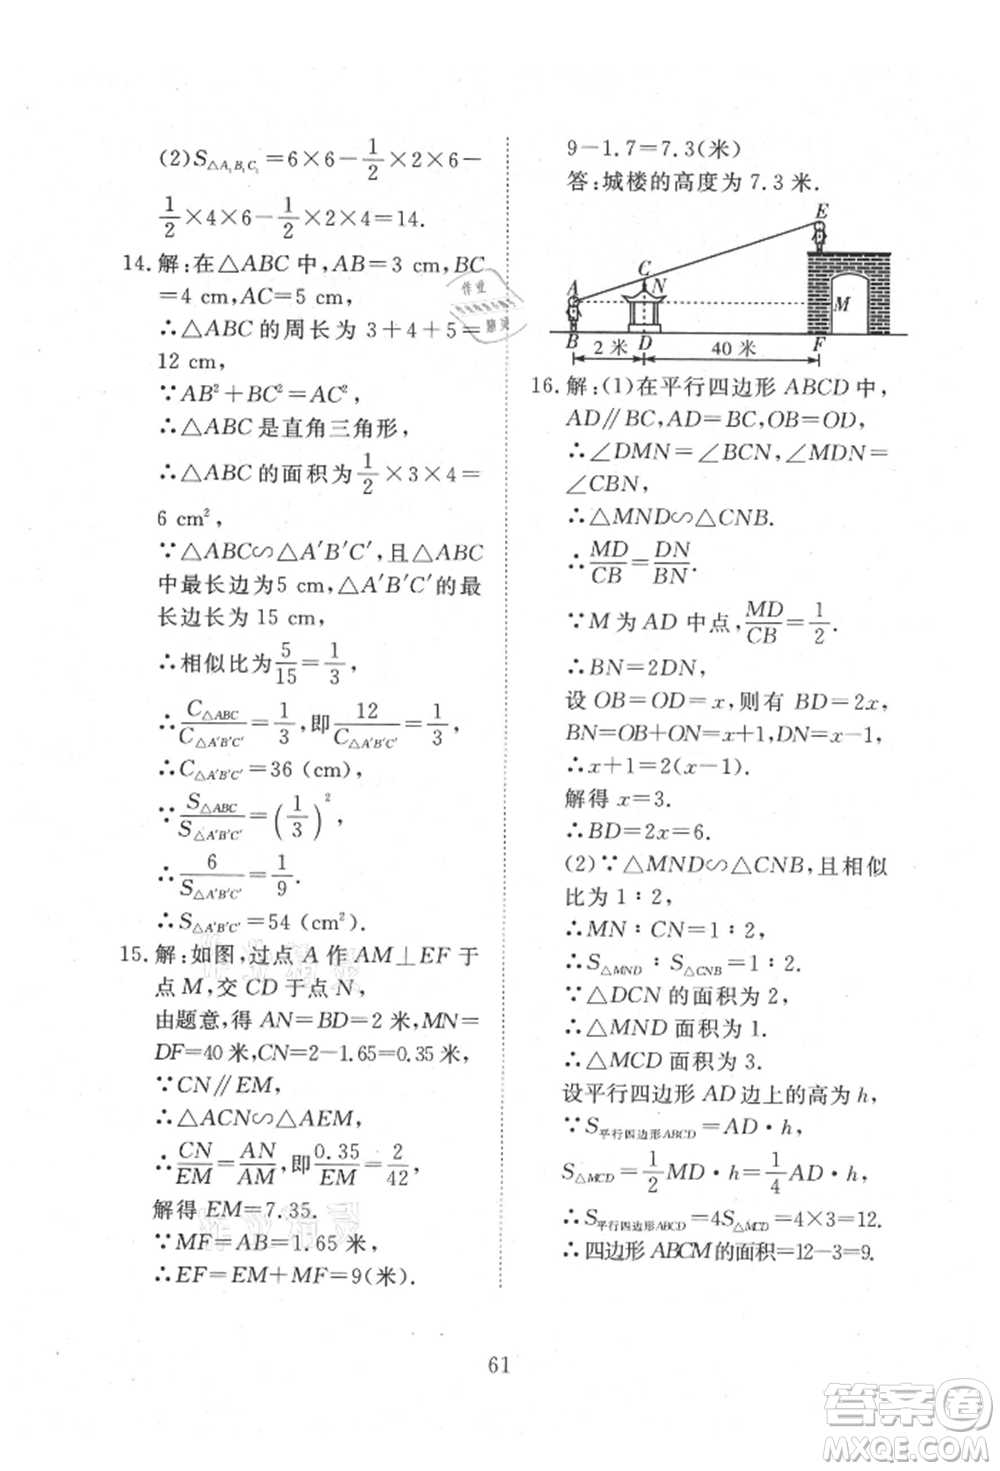 (2)S△A₁B₁C₁=6×6−1/2×2×6−
1/2×4×6−1/2×2×4=14.
14.解:在△ABC中,AB=3 cm,BC
=4 cm,AC=5 cm,
∴△ABC的周长为3+4+5=
12 cm,
∵AB²+BC²=AC²,
∴△ABC是直角三角形,
∴△ABC的面积为1/2×3×4=
6 cm²,
∵△ABC∽△A′B′C′,且△ABC
中最长边为5 cm,△A′B′C′的最
长边长为15 cm,
∴相似比为5/15=1/3,
∴C△ABC/C△A′B′C′=1/3,即12/C△A′B′C′=1/3,
∴C△A′B′C′=36(cm)
∵S△ABC/S△A′B′C′=(1/3)²,
∴6/S△A′B′C′=1/9.
∴S△A′B′C′=54(cm²).
15.解:如图,过点A作AM⊥EF于
点M,交CD于点N,
由题意,得AN=BD=2米,MN=
DF=40米,CN=2−1.65=0.35米,
∵CN∥EM,
∴△ACN∽△AEM,
∴CN/EM=AN/AM,即0.35/EM=2/42,
解得EM=7.35.
∵MF=AB=1.65米,
∴EF=EM+MF=9(米).
9−1.7=7.3(米)
答:城楼的高度为7.3米.
E
C
A
N
M
B
D
F
2米
40米
16.解:(1)在平行四边形ABCD中,
AD∥BC,AD=BC,OB=OD,
∴∠DMN=∠BCN,∠MDN=
∠CBN,
∴△MND∽△CNB.
∴MD/CB=DN/BN.
∵M为AD中点,MD/CB=1/2.
∴BN=2DN,
设OB=OD=x,则有BD=2x,
BN=OB+ON=x+1,DN=x−1,
∴x+1=2(x−1).
解得x=3.
∴BD=2x=6.
(2)∵△MND∽△CNB,且相似
比为1∶2,
∴MN∶CN=1∶2.
∴S△MND∶S△CNB=1∶2.
∵△DCN的面积为2,
∴△MND面积为1.
∴△MCD面积为3.
设平行四边形AD边上的高为h,
∵S平行四边形ABCD=AD·h,
S△MCD=1/2MD·h=1/4AD·h,
∴S平行四边形ABCD=4S△MCD=4×3=12.
∴四边形ABCM的面积=12−3=9.
61
答案卷
MXQE.COM